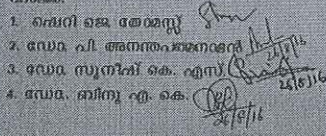 1. ഷെറി ജെ തോമസ്സ്
2. ഡോ. പി. അനന്തപദ്മനാഭൻ
3. ഡോ. സുനീഷ് കെ. എസ്. 26/8/16
4. ഡോ. ബിനു എ. കെ.
26/8/16